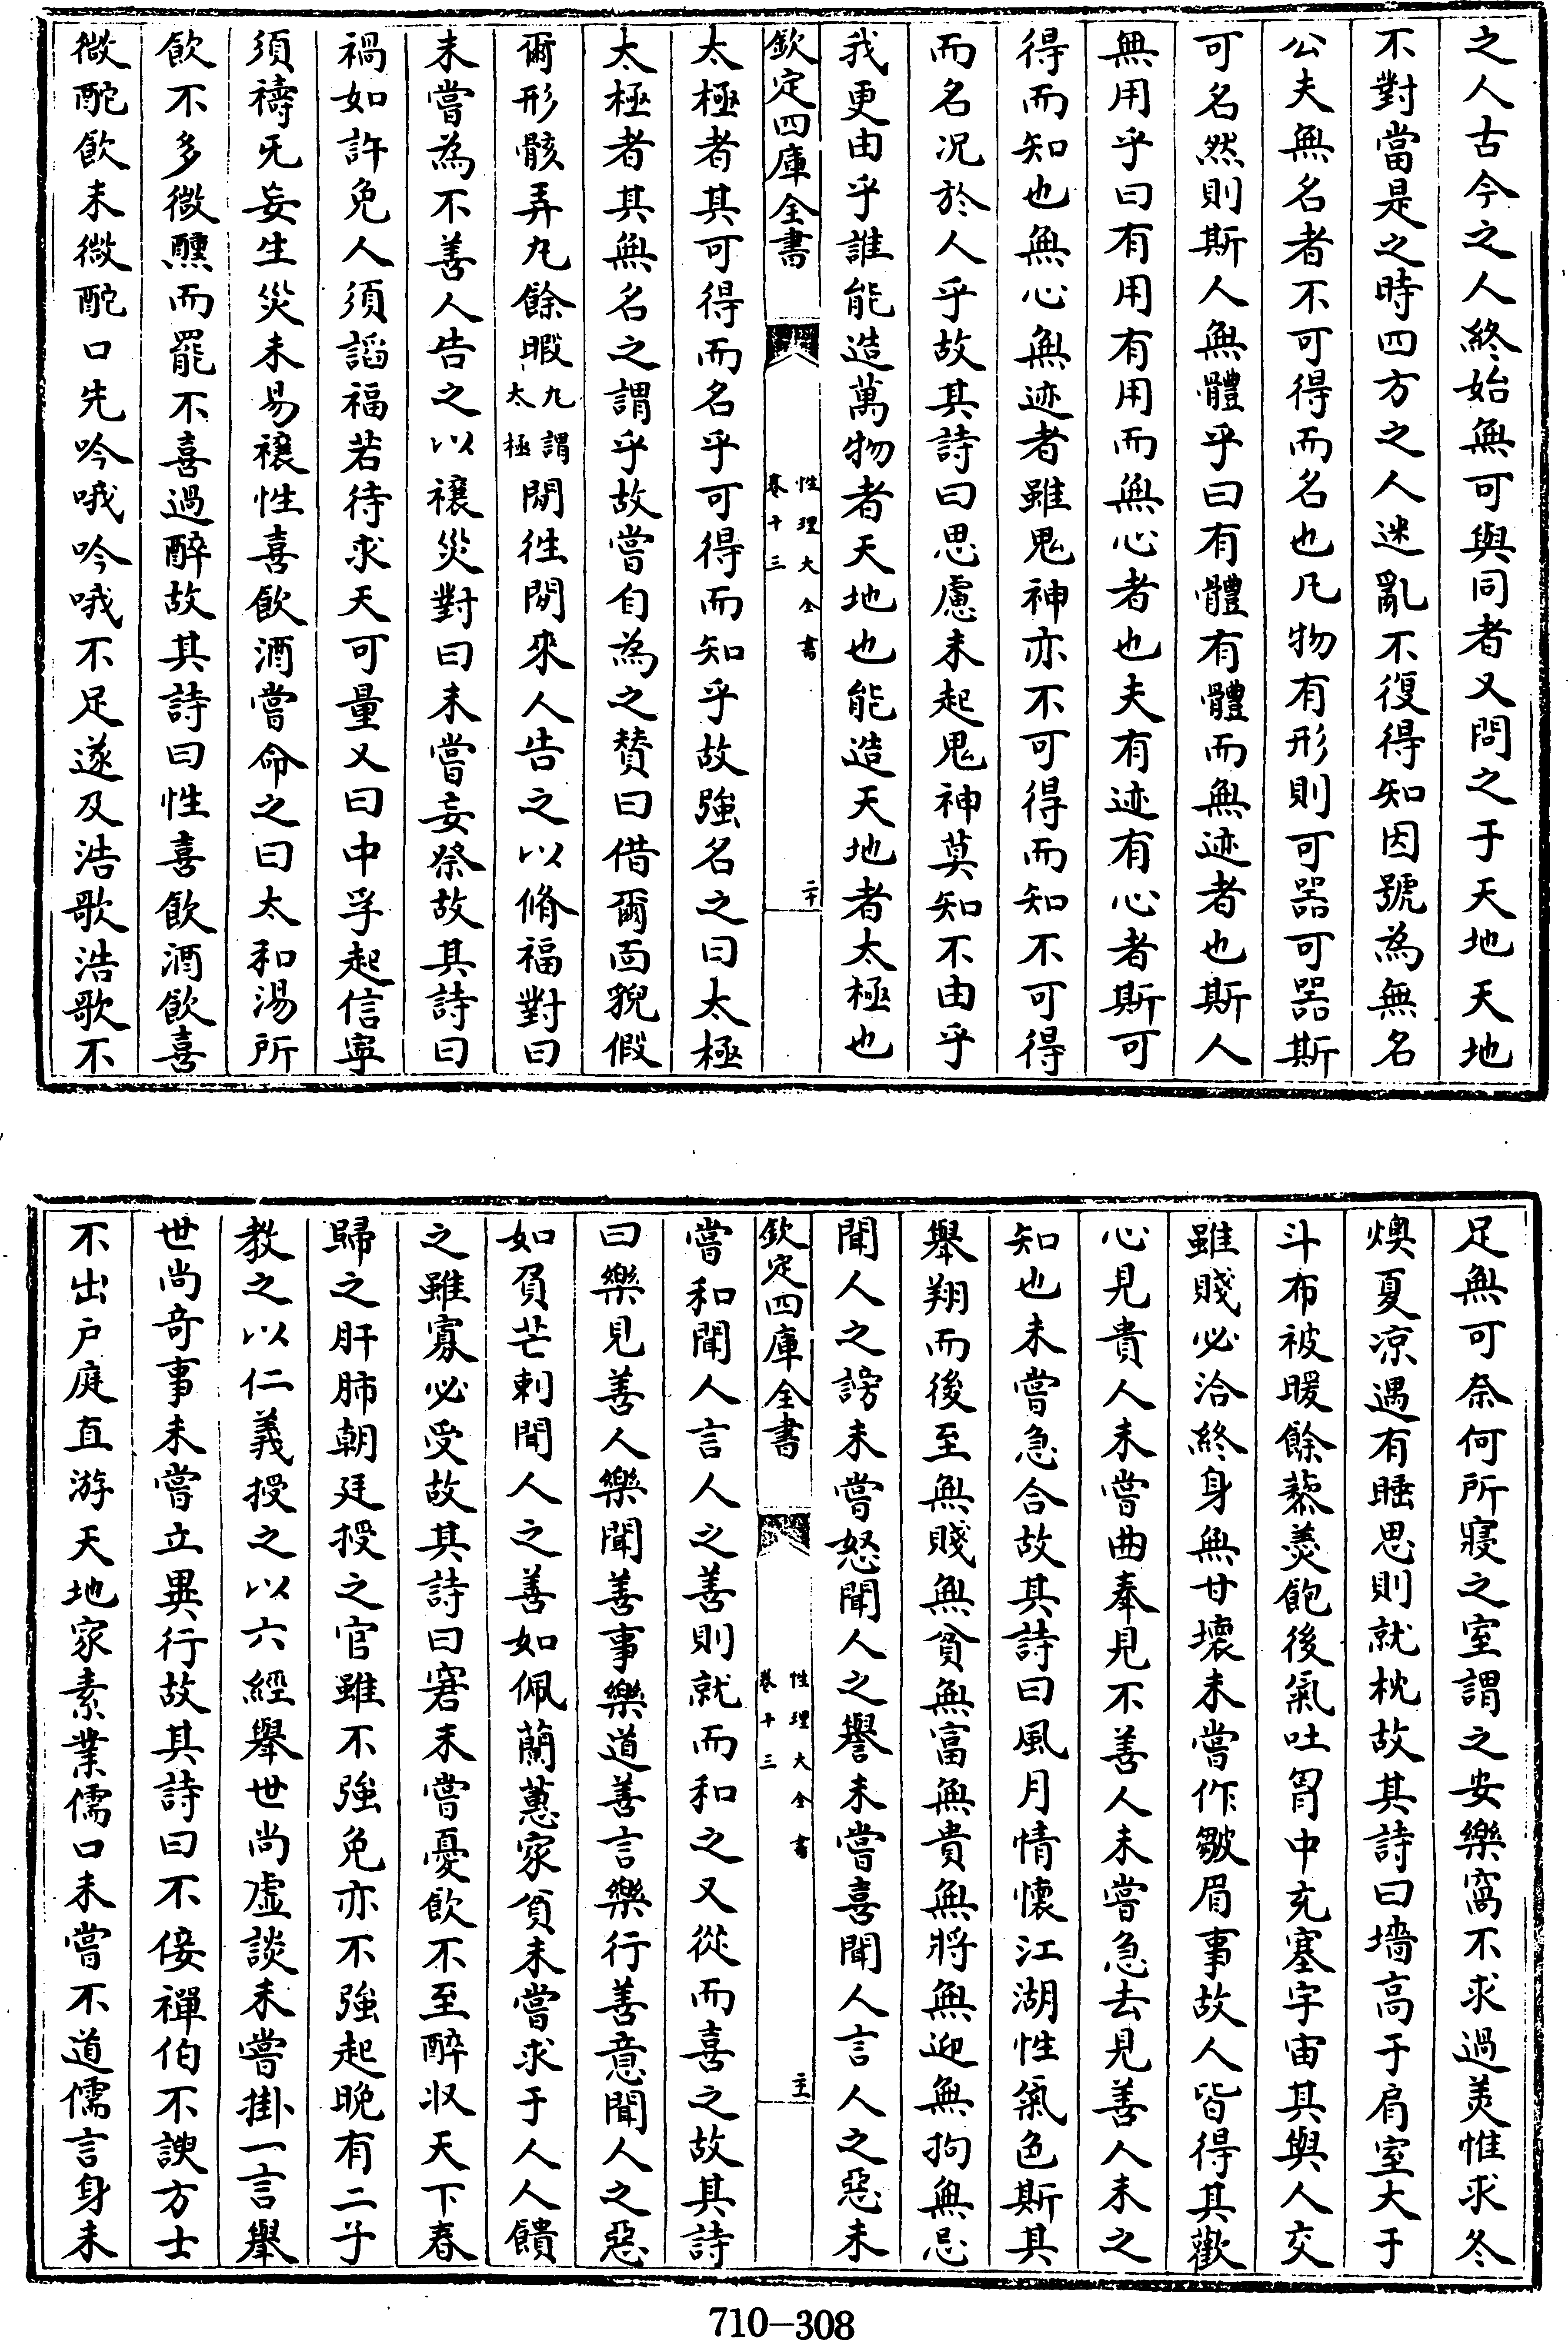 之人古今之人終始無可與同者又問之于天地天地
不對當是之時四方之人迷亂不復得知因號為無名
公夫無名者不可得而名也凡物有形則可器可器斯
可名然則斯人無體乎曰有體有體而無迹者也斯人
無用乎曰有用有用而無心者也夫有迹有心者斯可
得而知也無心無迹者雖鬼神亦不可得而知不可得
而名况於人乎故其詩曰思慮未起鬼神莫知不由乎
我更由乎誰能造萬物者天地也能造天地者太極也
欽定四庫全書
性理大全書
卷十三
二十
太極者其可得而名乎可得而知乎故強名之曰太極
太極者其無名之謂乎故嘗自為之贊曰借爾面貌假
爾形骸弄丸餘暇丸謂太極閒徃閒來人告之以脩福對曰
未嘗為不善人告之以禳災對曰未嘗妄祭故其詩曰
禍如許免人須謟福若待求天可量又曰中孚起信寧
須禱无妄生災未易禳性喜飲酒嘗命之曰太和湯所
飲不多微醺而罷不喜過醉故其詩曰性喜飲酒飲喜
微酡飲未微酡口先吟哦吟哦不足遂及浩歌浩歌不
足無可奈何所寢之室謂之安樂窩不求過美惟求冬
燠夏凉遇有睡思則就枕故其詩曰墻高于肩室大于
斗布被暖餘藜羮飽後氣吐胷中充塞宇宙其與人交
雖賤必洽終身無甘壞未嘗作皺眉事故人皆得其歡
心見貴人未嘗曲奉見不善人未嘗急去見善人未之
知也未嘗急合故其詩曰風月情懷江湖性氣色斯其
舉翔而後至無賤無貧無富無貴無將無迎無拘無忌
聞人之謗未嘗怒聞人之譽未嘗喜聞人言人之惡未
欽定四庫全書
性理大全書
卷十三
二十一
嘗和聞人言人之善則就而和之又從而喜之故其詩
曰樂見善人樂聞善事樂道善言樂行善意聞人之惡
如負芒刺聞人之善如佩蘭蕙家貧未嘗求于人人饋
之雖寡必受故其詩曰窘未嘗憂飲不至醉收天下春
歸之肝肺朝廷授之官雖不強免亦不強起晚有二子
教之以仁義授之以六經舉世尚虚談未嘗掛一言舉
世尚竒事未嘗立異行故其詩曰不佞禪伯不諛方士
不出户庭直游天地家素業儒口未嘗不道儒言身未
710-308